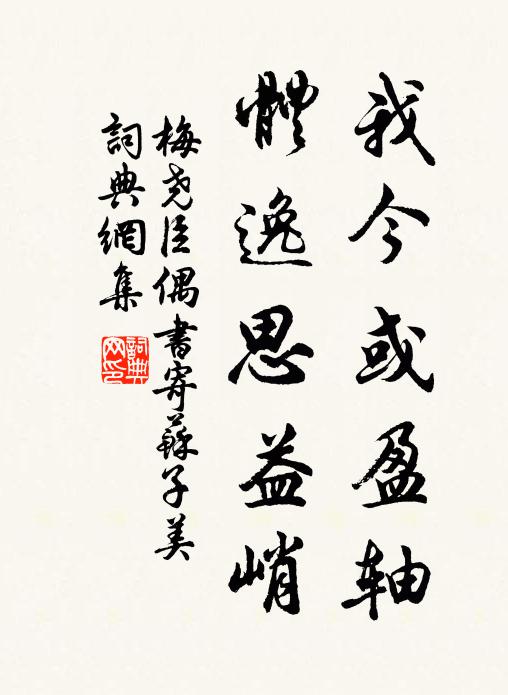 我今或盈轴
體逸思益峭
梅尧臣偶書寄蘇子美
詞典網集
詞典网印